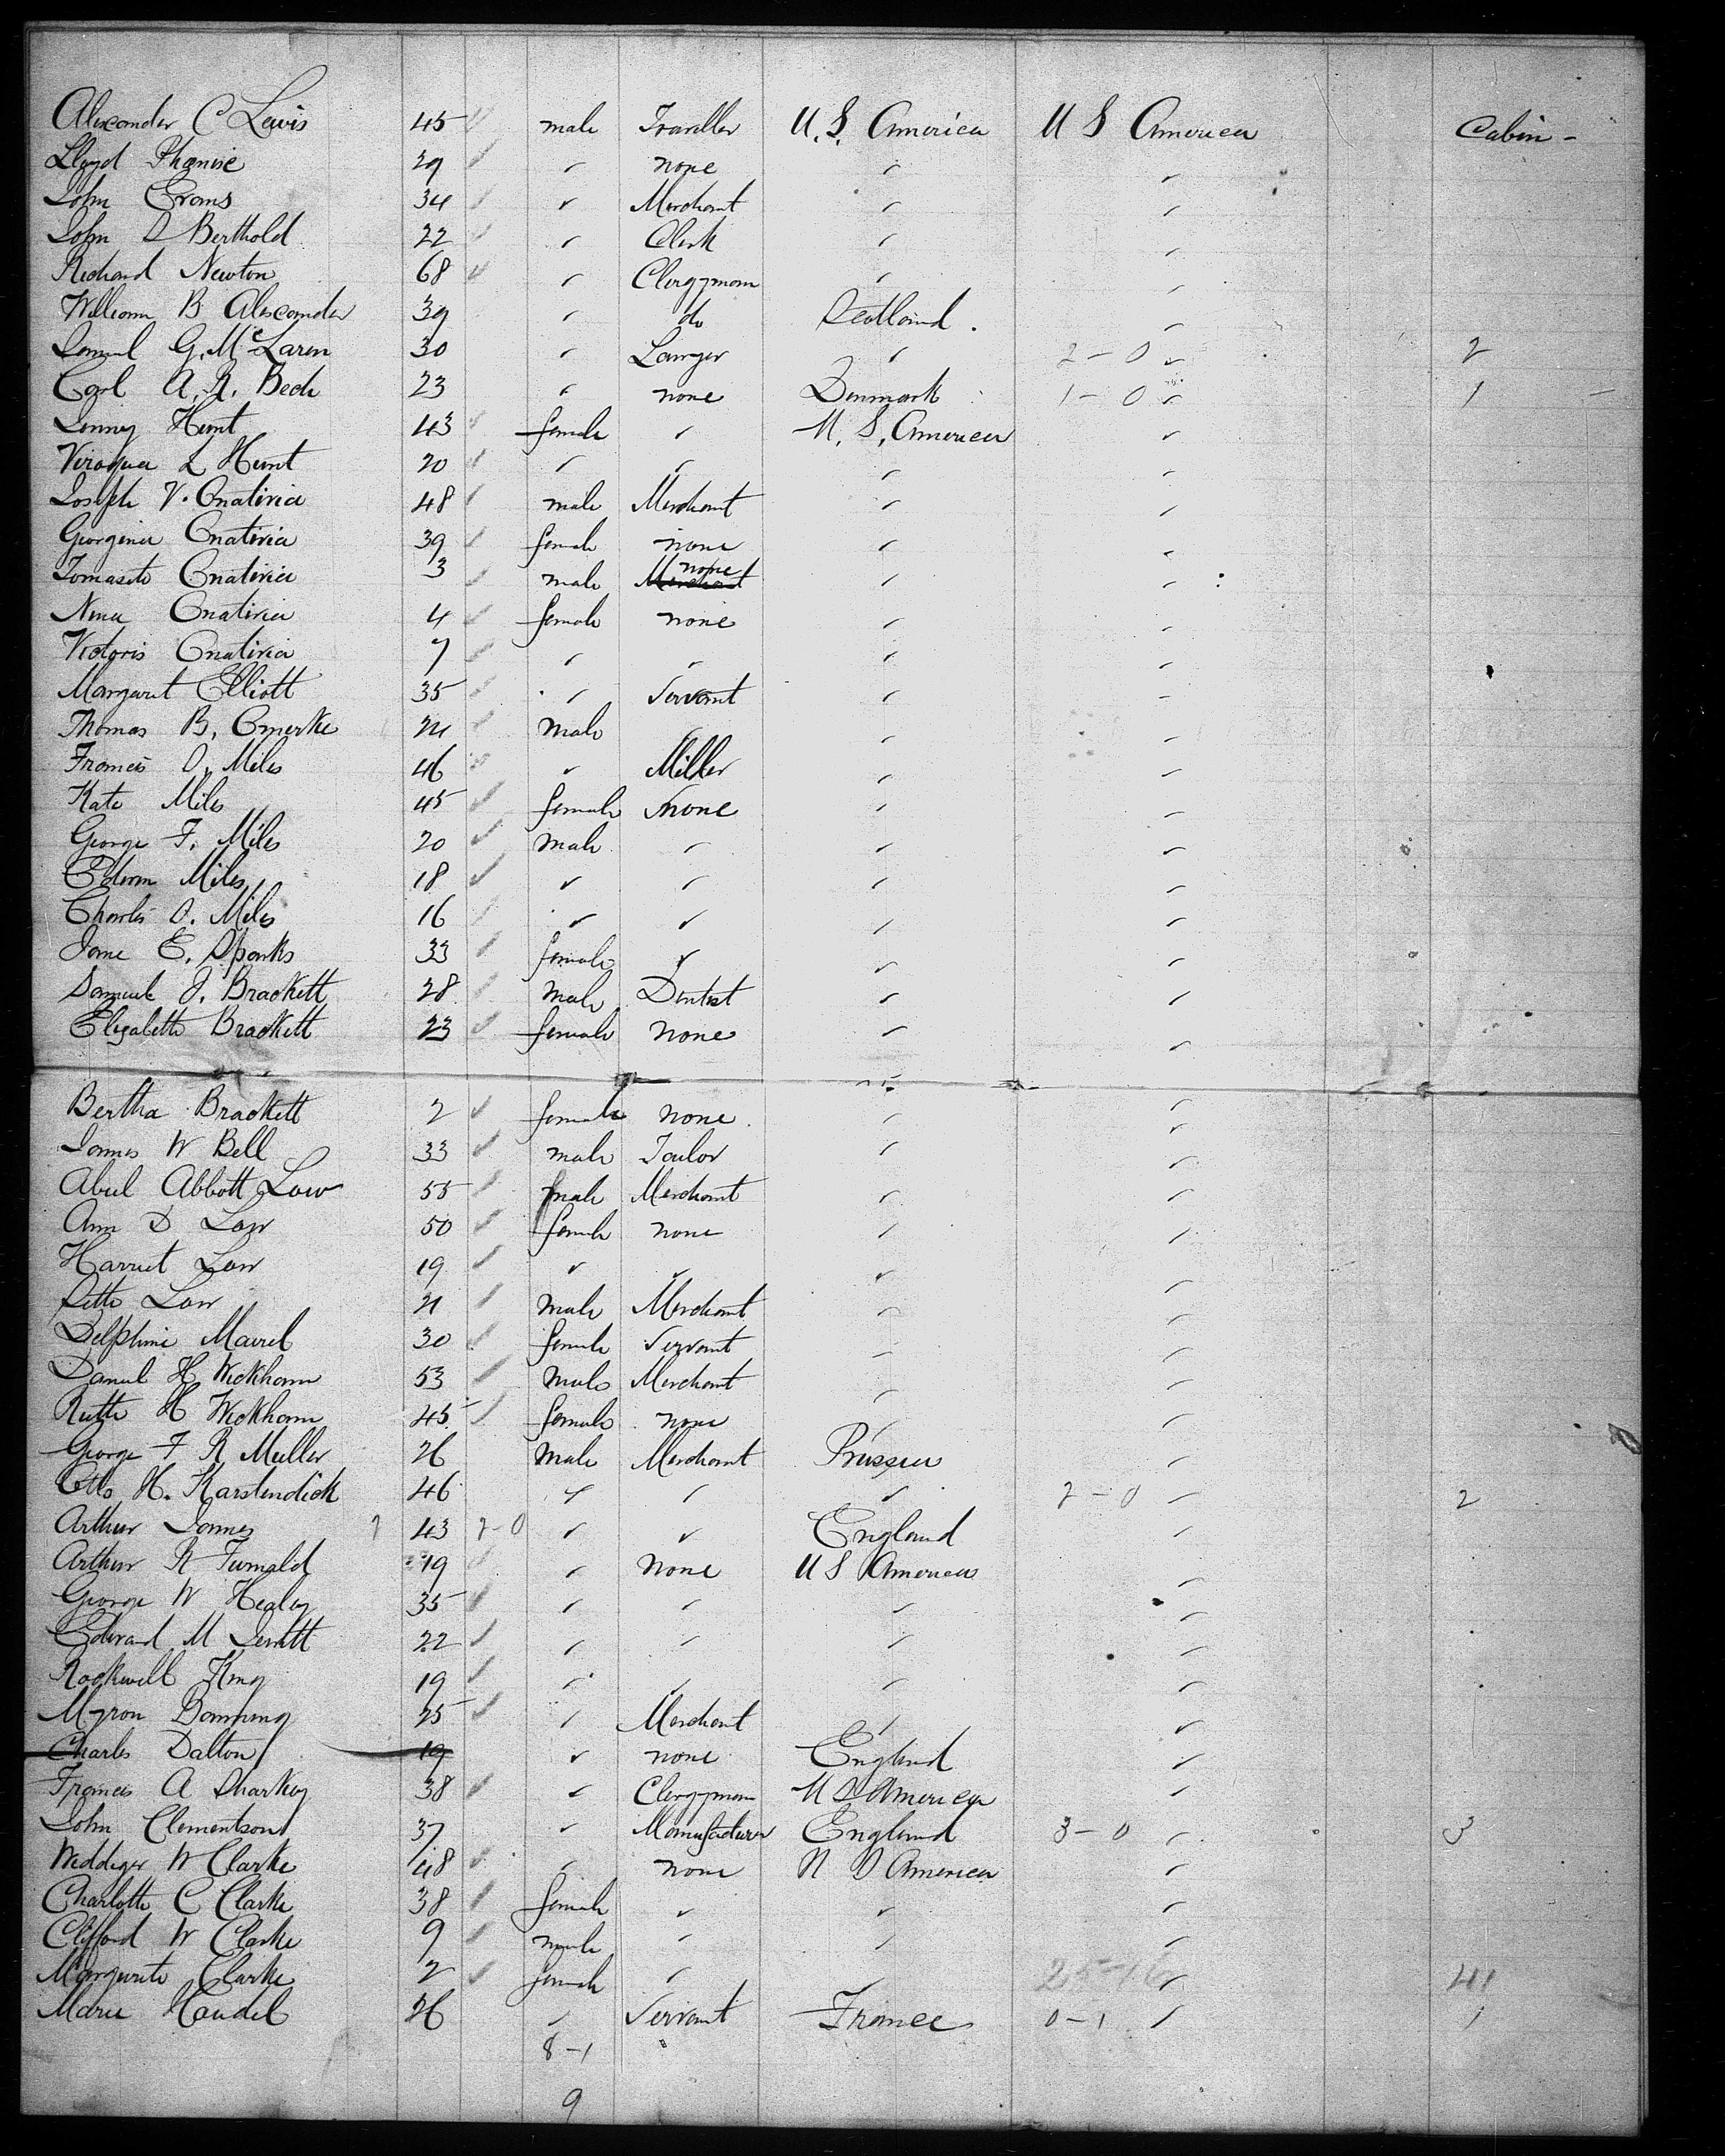 Alexander C Lewis 45 male Traveller U.S. America U S America Cabin -
Lloyd Phoenix 39 " none " "
John Evans 34 " Merchant " "
John D Berthold 22 " Clerk " "
Richard Newton 68 " Clergyman " "
William B Alexander 39 " do Scotland. "
Samuel G. McLaren 30 " Lawyer " 2-0 " 2
Carl A. R. Bech 23 " none Denmark 1-0 " 1
Hunt 43 female " U. S. America "
Viroqua L Hunt 20 " " " "
Joseph V. Onativia 48 male Merchant " "
Georgina Onativia 39 female none " "
Tomasito Onativia 3 male none Merchant " "
Nina Onativia 4 female none " "
Victoris Onativia 7 " " " "
Margaret Elliott 35 " Servant " "
Thomas B. male " " "
Francis D. Miles 46 " Miller " "
Kate Miles 45 female none " "
George F. Miles 20 male " " "
Edwin Miles 18 " " " "
Charles D. Miles 16 " " " "
Jane E. Sparks 33 female " " "
Samuel J. Brackett 28 male Dentist " "
Elizabeth Brackett 23 female none " "
Bertha Brackett 2 female none. " "
James W Bell 33 male Tailor " "
Abiel Abbott Low 55 male Merchant " "
Ann D Low 50 female none " "
Harriet Low 19 " " " "
Seth Low 21 male Merchant " "
Delphine 30 female Servant " "
Daniel H Wickham 53 male Merchant " "
Ruth H Wickham 45 female none " "
George F R Muller 26 male Merchant Prussia "
Otto H. Karstendick 46 " " " 2-0 " 2
Arthur James 2 43 2-0 " " England "
Arthur R 19 " none U S America "
George W Healey 35 " " " "
Edward M 22 " " " "
Rockwell King 19 " " " "
Myron Banning 25 " Merchant " "
Charles Dalton 19 " none England "
Francis A Sharkey 38 " Clergyman U S America "
John Clementson 37 " Manufacturer England 3-0 " 3
W Clarke 48 " none U S America "
Charlotte C Clarke 38 female " " "
Clifford W Clarke 9 male " " "
Marguerite Clarke 2 female " " 25-16 " 41
Marie 26 " Servant France 0-1 " 1
8-1
9